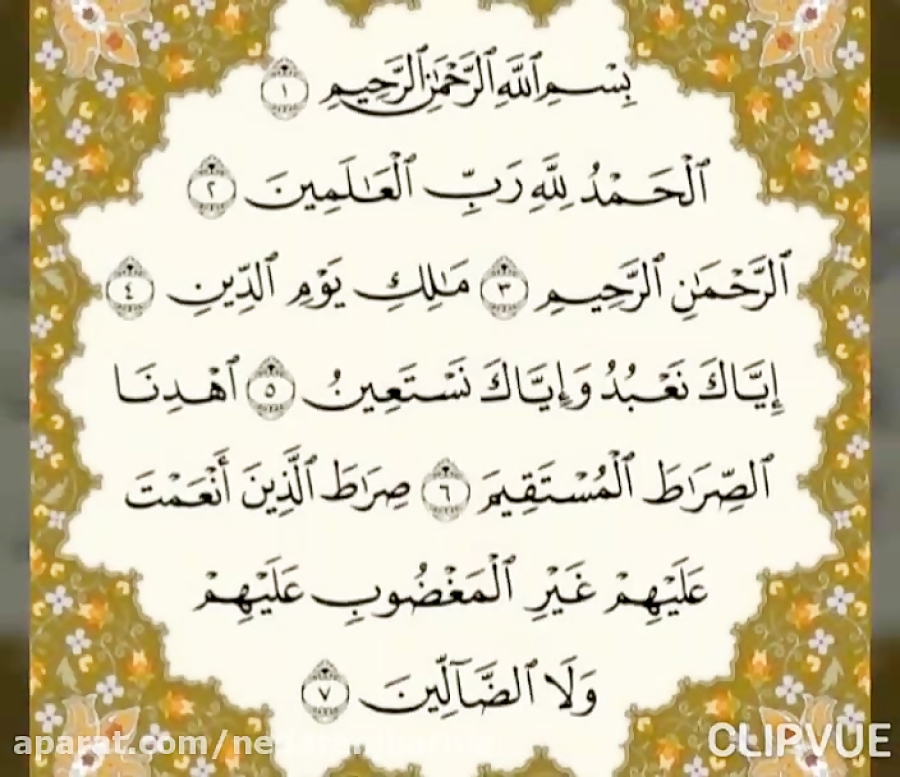 بِسْمِ ٱللَّهِ ٱلرَّحْمَٰنِ ٱلرَّحِيمِ ١
ٱلْحَمْدُ لِلَّهِ رَبِّ ٱلْعَٰلَمِينَ ٢
ٱلرَّحْمَٰنِ ٱلرَّحِيمِ ٣ مَٰلِكِ يَوْمِ ٱلدِّينِ ٤
إِيَّاكَ نَعْبُدُ وَإِيَّاكَ نَسْتَعِينُ ٥ ٱهْدِنَا
ٱلصِّرَٰطَ ٱلْمُسْتَقِيمَ ٦ صِرَٰطَ ٱلَّذِينَ أَنْعَمْتَ
عَلَيْهِمْ غَيْرِ ٱلْمَغْضُوبِ عَلَيْهِمْ
وَلَا ٱلضَّآلِّينَ ٧
aparat.com/
CLIPVUE